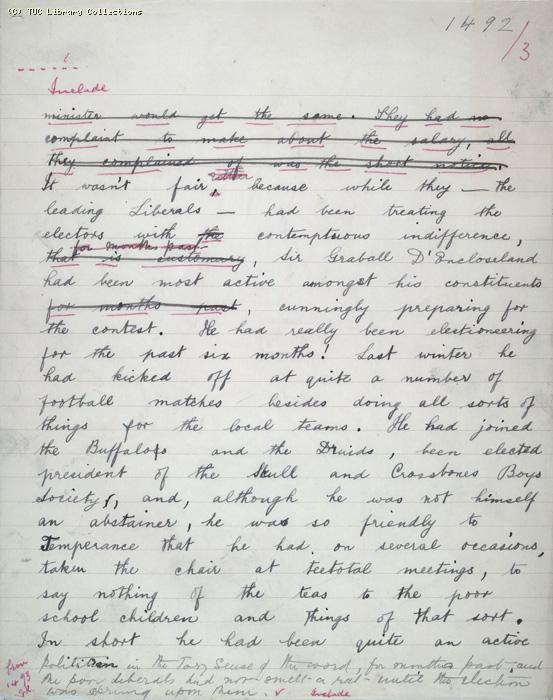 (C) TUC Library Collections
1492
/3
Include
minister would get the same. They had no
complaint to make about the salary, all
they complained of was the short notice.
It wasn't fair, either because while they — the
leading Liberals — had been treating the
electors with the contemptuous indifference,
for months past
that is customary, Sir Graball D'Encloseland
had been most active amongst his constituents
for months past, cunningly preparing for
the contest. He had really been electioneering
for the past six months! Last winter he
had kicked off at quite a number of
football matches besides doing all sorts of
things for the local teams. He had joined
the Buffalos and the Druids, been elected
president of the Skull and Crossbones Boys
Society, and, although he was not himself
an abstainer, he was so friendly to
Temperance that he had on several occasions,
taken the chair at teetotal meetings, to
say nothing of the teas to the poor
school children and things of that sort.
In short he had been quite an active
politician in the Tory Sense of the word, for months past and
the poor Liberals had not smelt a rat until the election
was sprung upon them.
Include
from
1493